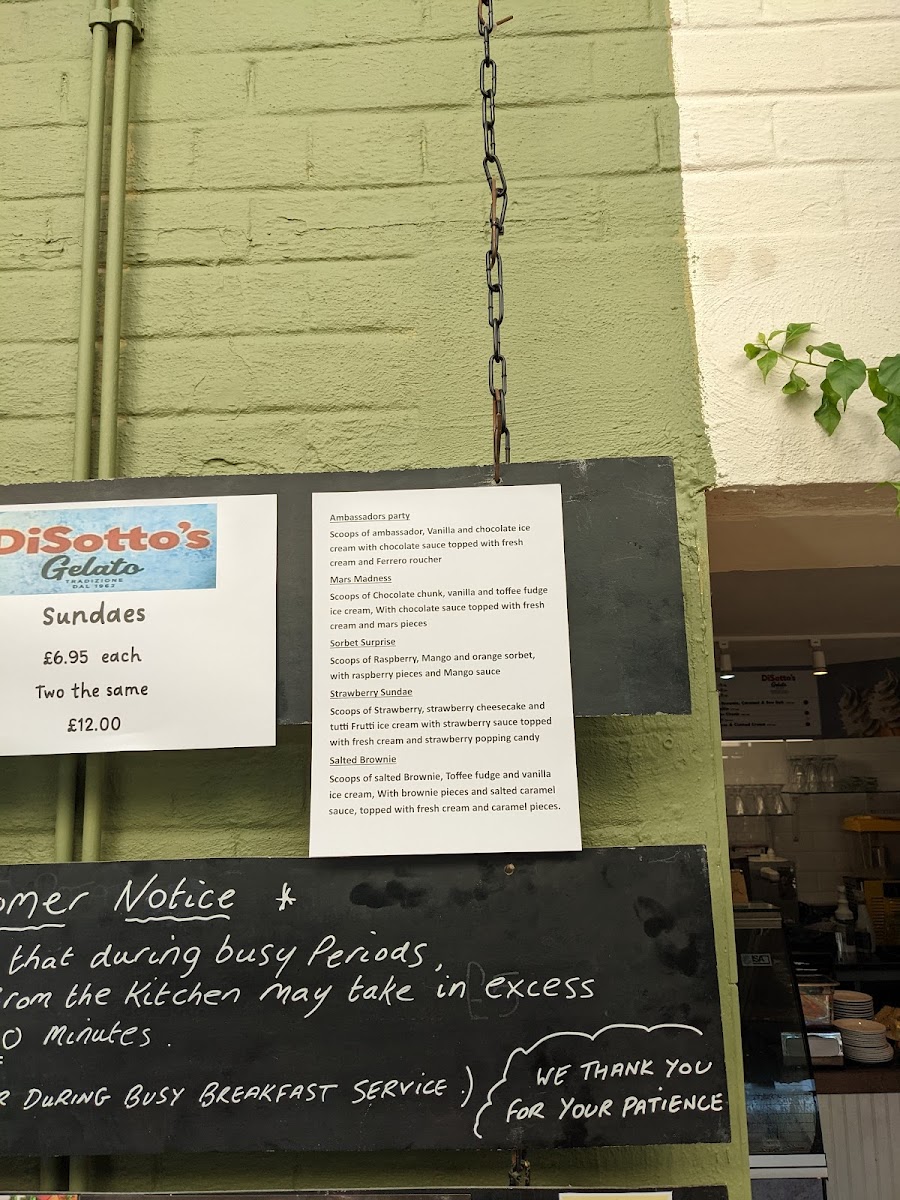 DiSotto's
Gelato
TRADIZIONE
DAL 1963
Sundaes
£6.95 each
Two the same
£12.00
Ambassadors party
Scoops of ambassador, Vanilla and chocolate ice
cream with chocolate sauce topped with fresh
cream and Ferrero roucher
Mars Madness
Scoops of Chocolate chunk, vanilla and toffee fudge
ice cream, With chocolate sauce topped with fresh
cream and mars pieces
Sorbet Surprise
Scoops of Raspberry, Mango and orange sorbet,
with raspberry pieces and Mango sauce
Strawberry Sundae
Scoops of Strawberry, strawberry cheesecake and
tutti Frutti ice cream with strawberry sauce topped
with fresh cream and strawberry popping candy
Salted Brownie
Scoops of salted Brownie, Toffee fudge and vanilla
ice cream, With brownie pieces and salted caramel
sauce, topped with fresh cream and caramel pieces.
omer Notice *
that during busy Periods,
from the Kitchen may take in excess
0 Minutes.
R DURING BUSY BREAKFAST SERVICE.)
WE THANK YOU
FOR YOUR PATIENCE
DiSotto's
Gelato
ISA